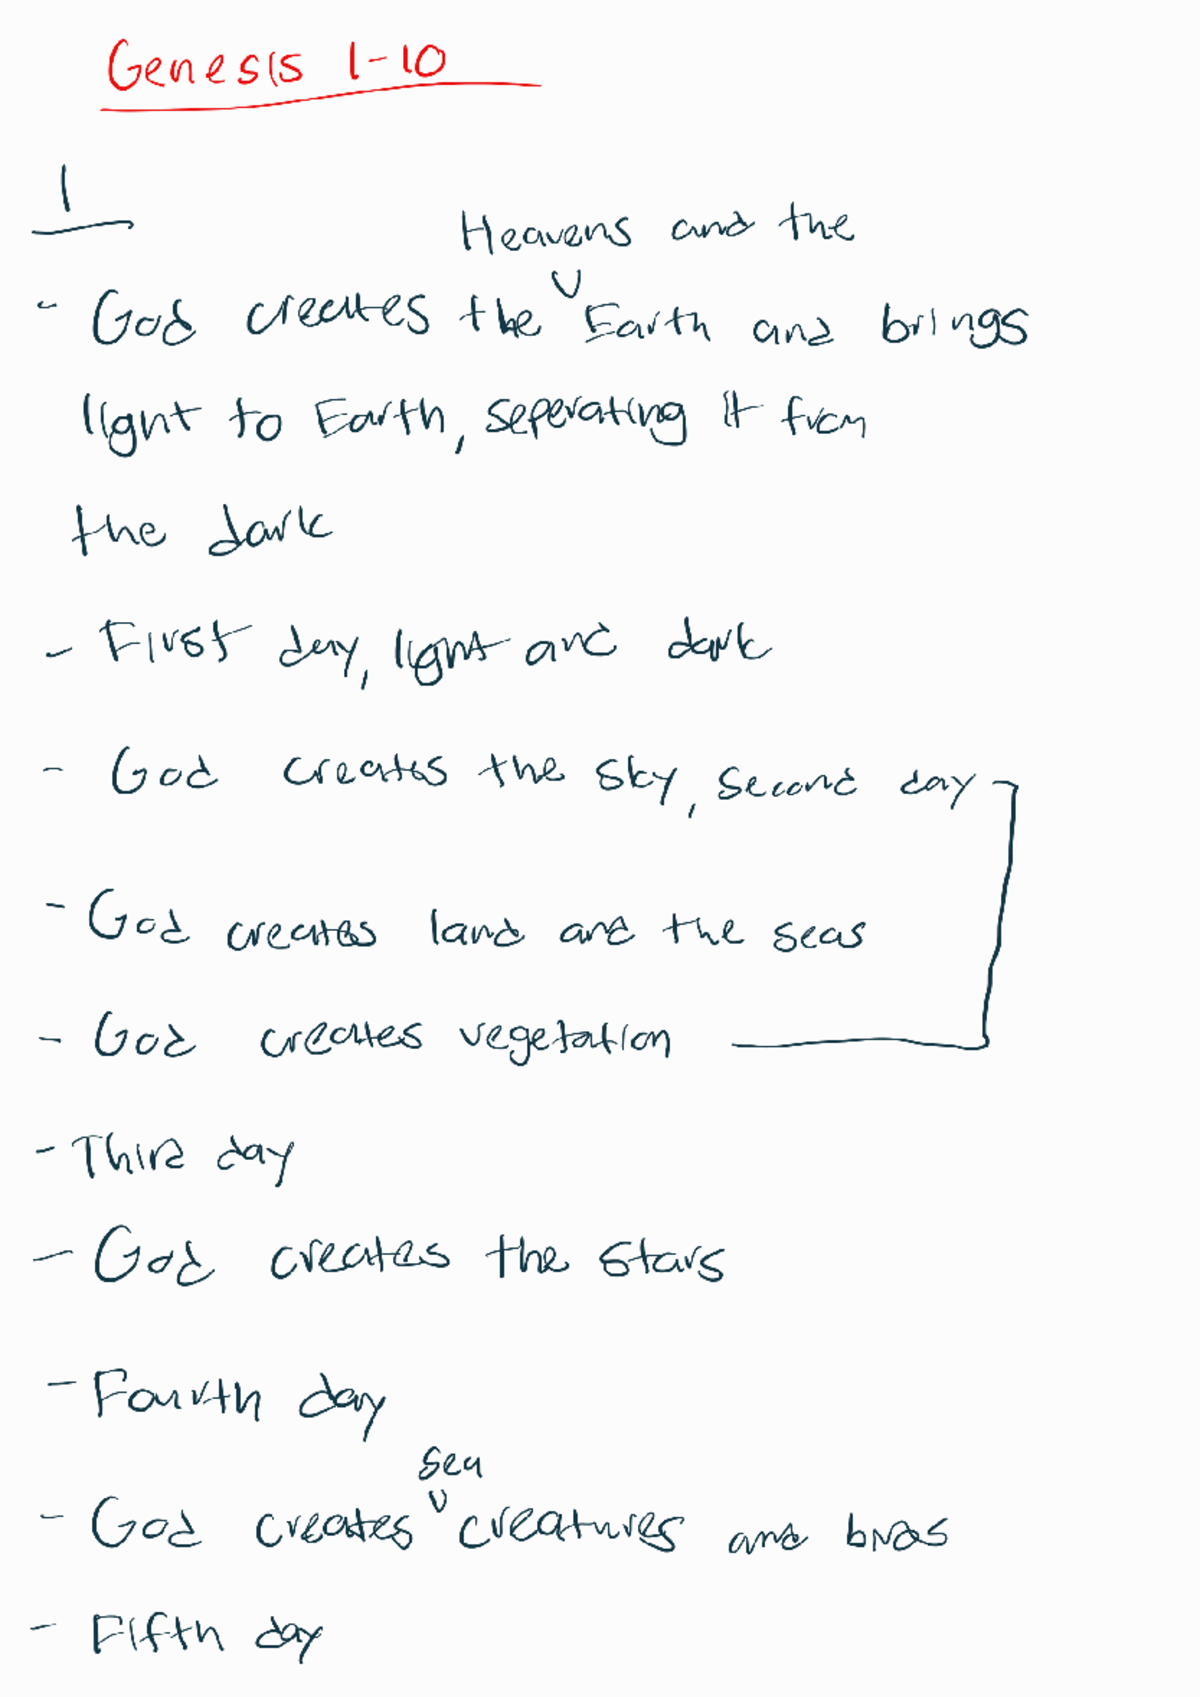 Genesis 1-10
1
Heavens and the
- God creates the Earth and brings
light to Earth, seperating it from
the dark
- First day, light and dark
- God creates the sky, second day
- God creates land and the seas
- God creates vegetation
- Third day
- God creates the stars
- Fourth day
sea
- God creates creatures and birds
- Fifth day